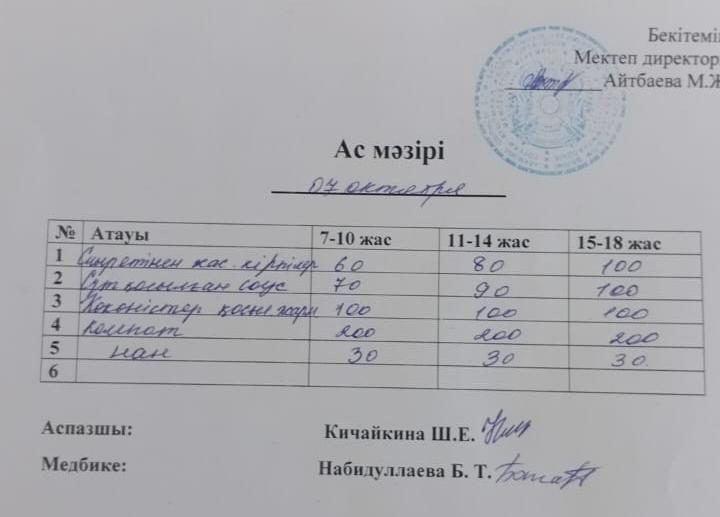 Бекітемін
Мектеп директор
Айтбаева М.Ж
Ас мәзірі
07 октября
№ Атауы 7-10 жас 11-14 жас 15-18 жас
1 Сиыр етінен жас. кірпілер 60 80 100
2 Сүт қосылған соус 70 90 100
3 Көкөністер қосып жарм 100 100 100
4 компот 200 200 200
5 нан 30 30 30
6
Аспазшы: Кичайкина Ш.Е.
Медбике: Набидуллаева Б. Т.